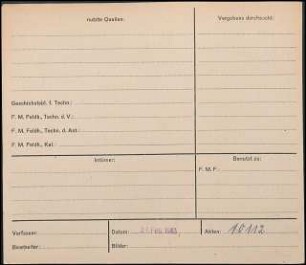 nublle Quellen:
Vergebens durchsucht:
Geschichtsbl. f. Techn.:
F. M. Feldh., Techn. d. V.:
F. M. Feldh., Techn. d. Ant.:
F. M. Feldh., Kal.:
Irrtümer:
Benutzt zu:
F. M. F.:
Verfasser:
Datum:
Akten: 10112
Bearbeiter:
Bilder: